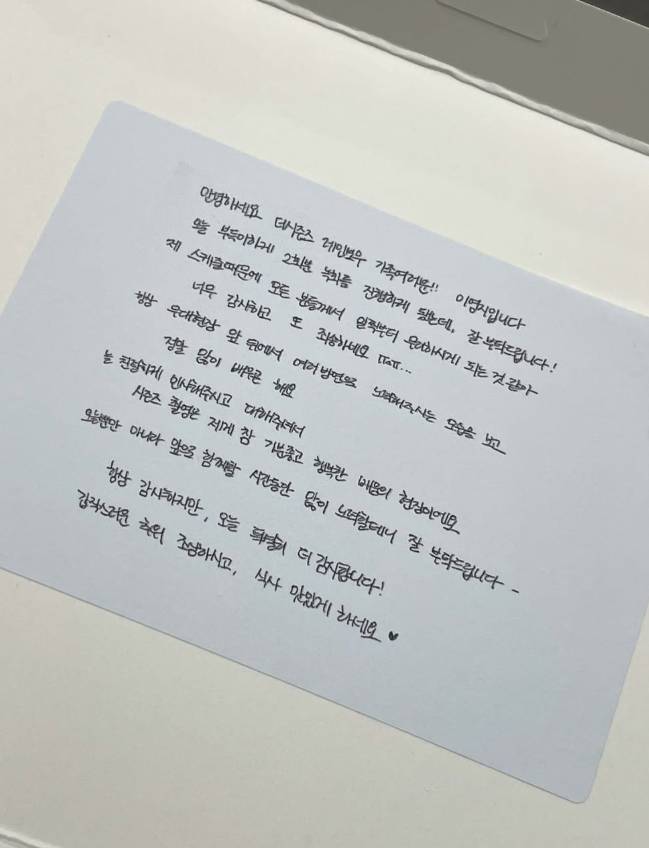 안녕하세요 더시즌즈 레인보우 가족여러분!! 이영지입니다
오늘 부득이하게 2회분 녹화를 진행하게 됐는데, 잘 부탁드립니다!
제 스케줄때문에 모든 분들께서 일찍부터 무리하시게 되는 것 같아
너무 감사하고 또 죄송하네요 ㅠㅠ...
항상 무대현장 앞 뒤에서 여러방면으로 노력해주시는 모습을 보고
정말 많이 배우곤 해요
늘 친절하게 인사해주시고 대해주셔서
시즌즈 촬영은 저에게 참 기분좋고 행복한 배움의 현장이에요
오늘뿐만 아니라 앞으로 함께할 시간동안 많이 노력할테니 잘 부탁드립니다 -
항상 감사하지만, 오늘 특별히 더 감사합니다!
갑작스러운 추위 조심하시고, 식사 맛있게 하세요 ♥